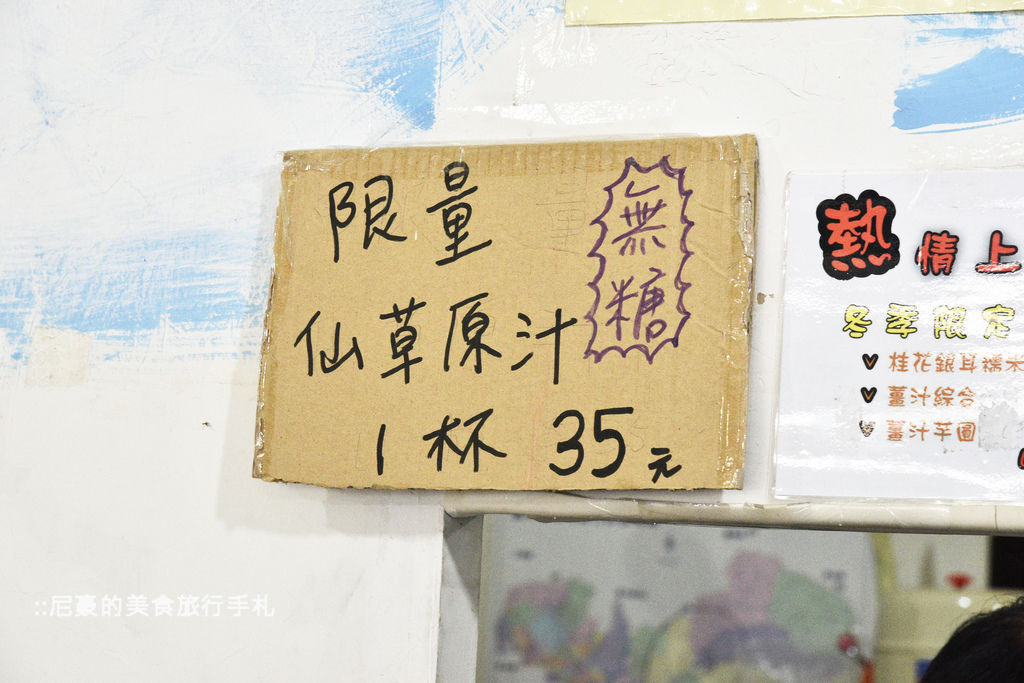 限量
仙草原汁
1杯35元
無糖
熱情上
冬季限定
桂花銀耳糯米
薑汁綜合
薑汁芋圓
::尼豪的美食旅行手札